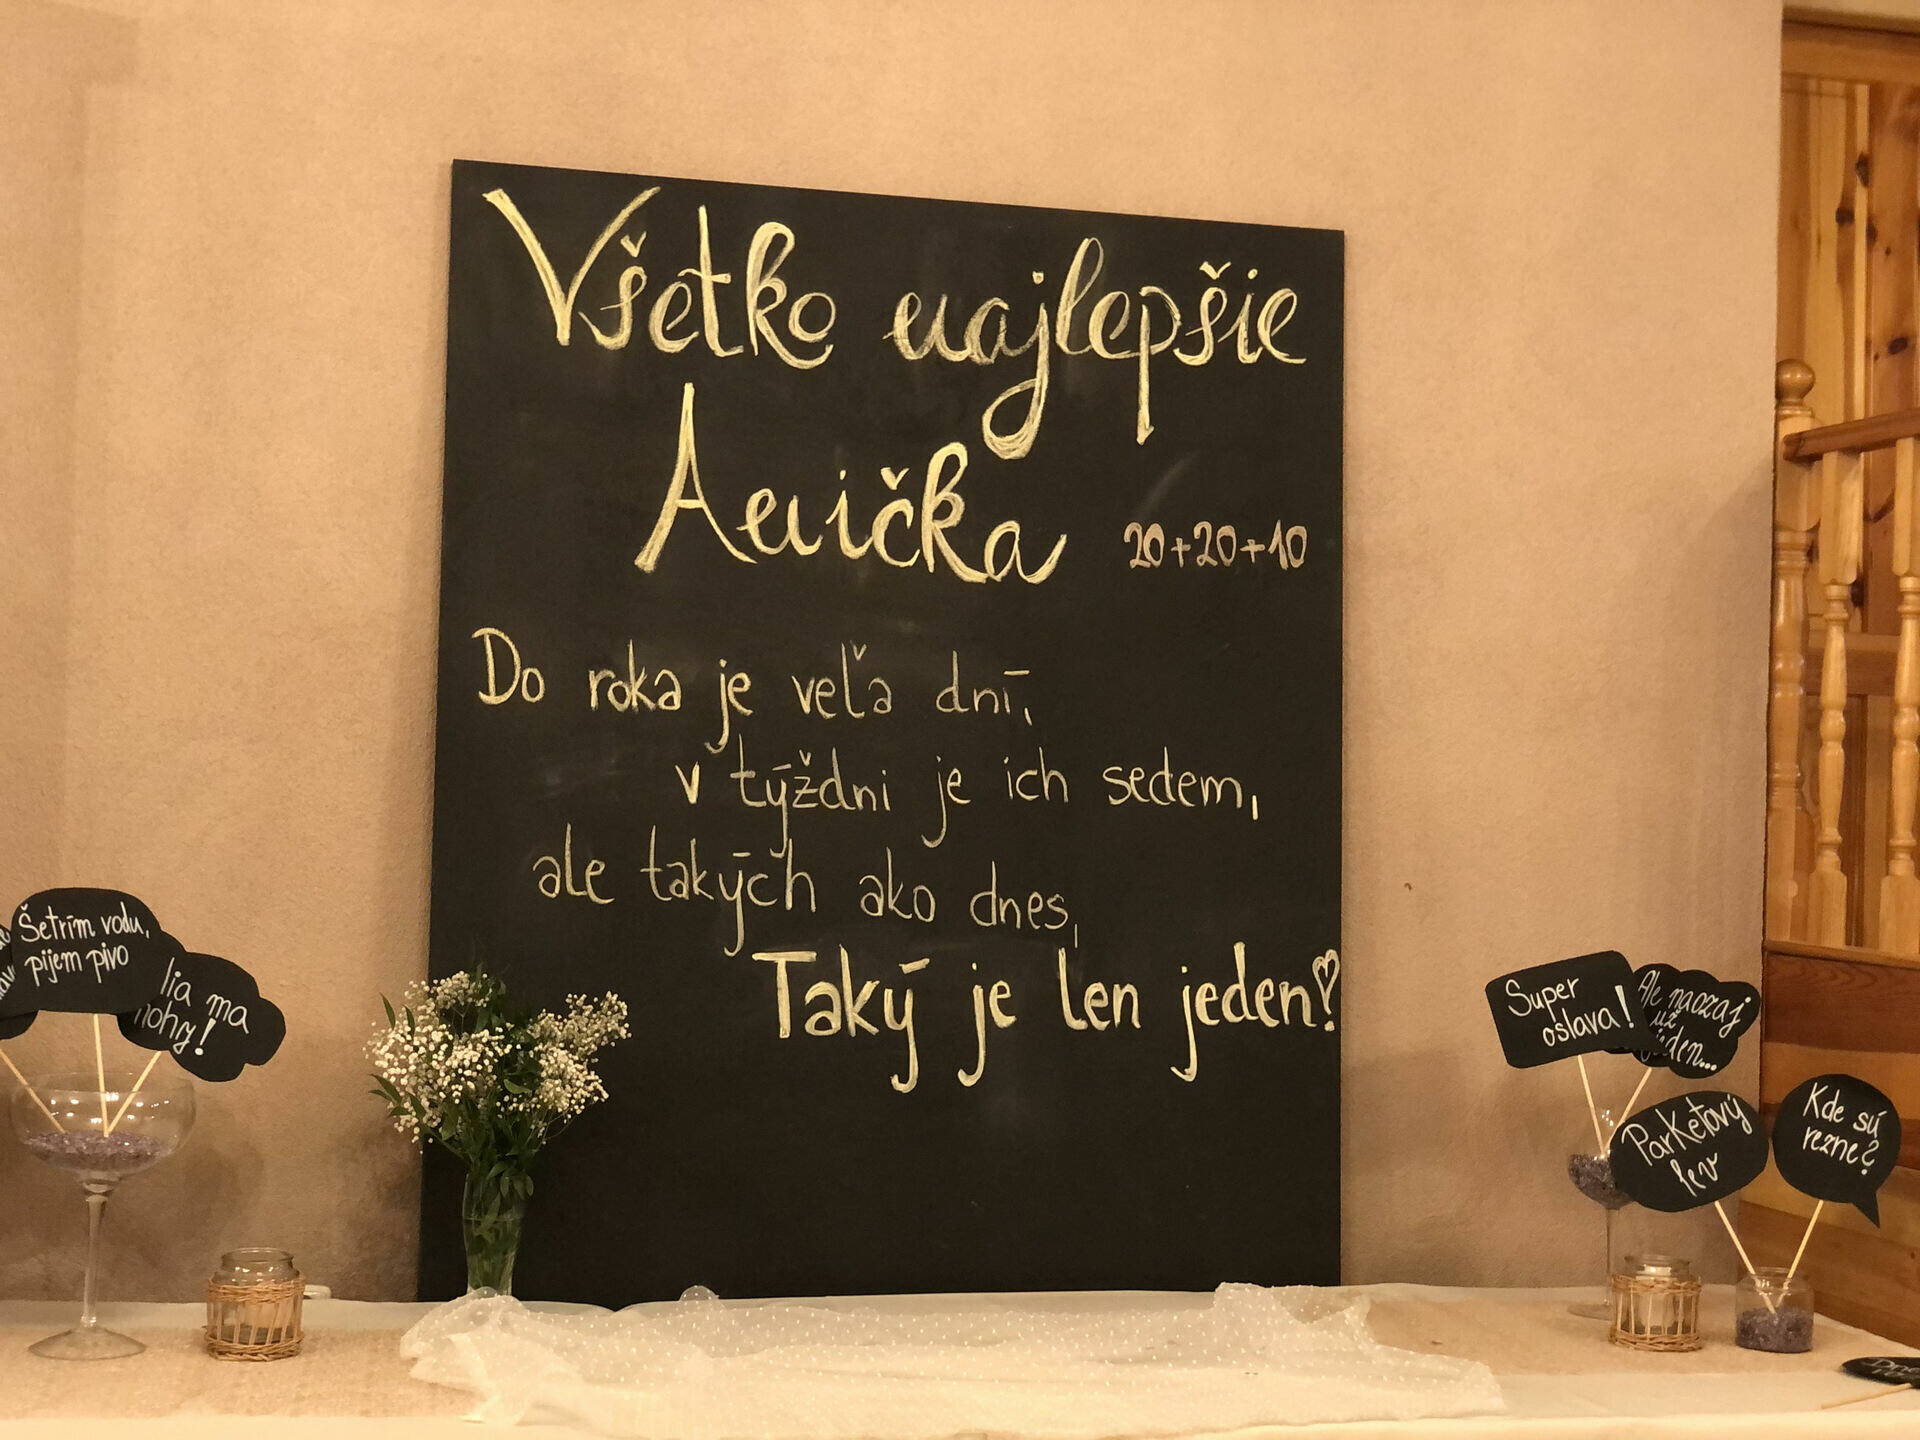 Všetko najlepšie
Anička 20+20+10
Do roka je veľa dní,
v týždni je ich sedem,
ale takých ako dnes,
Taký je len jeden!
Šetrím vodu,
pijem pivo
lia ma
nohy!
Super
oslava!
Ale naozaj
už
jeden...
Parketový
lev
Kde sú
rezne?